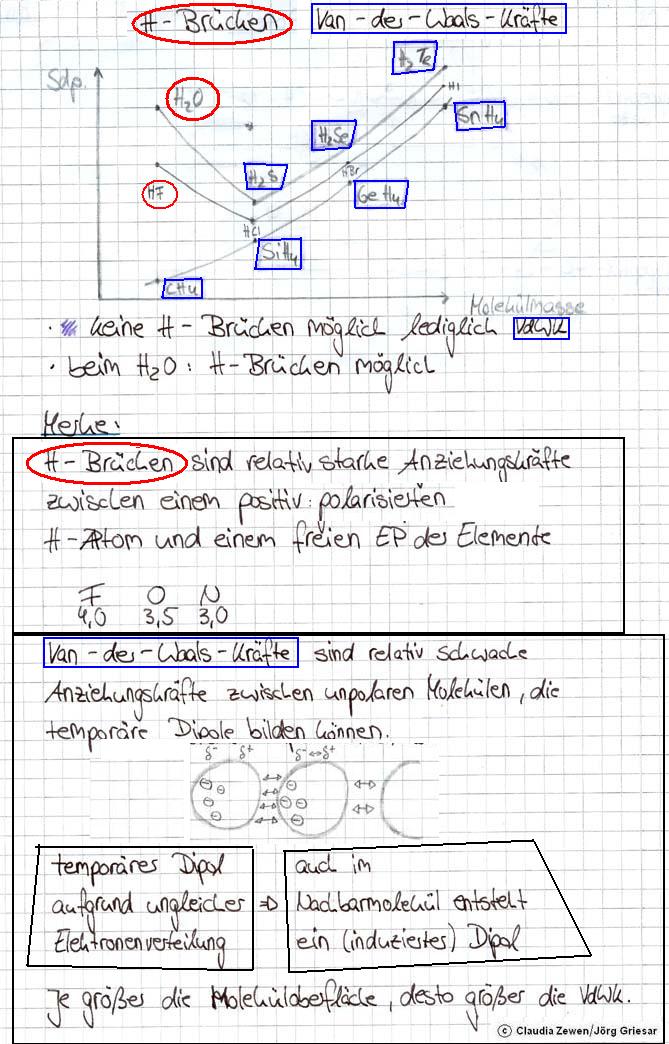 H-Brücken Van-der-Waals-Kräfte
H₂Te
Sdp.
H₂O
HI
SnH₄
H₂Se
H₂S
HBr
HF
GeH₄
HCl
SiH₄
CH₄
Molekülmasse
· keine H-Brücken möglich lediglich VdWK
· beim H₂O: H-Brücken möglich
Merke:
H-Brücken sind relativ starke Anziehungskräfte
zwischen einem positiv polarisierten
H-Atom und einem freien EP der Elemente
F O N
4,0 3,5 3,0
Van-der-Waals-Kräfte sind relativ schwache
Anziehungskräfte zwischen unpolaren Molekülen, die
temporäre Dipole bilden können.
δ- δ+ δ- ↔ δ+
temporäres Dipol
aufgrund ungleicher ⇒
Elektronenverteilung
auch im
Nachbarmolekül entsteht
ein (induziertes) Dipol
Je größer die Moleküloberfläche, desto größer die VdWK.
© Claudia Zewen/Jörg Griesar